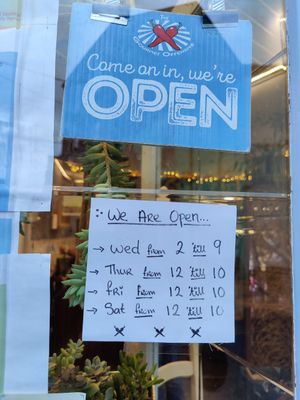 Come on in, we're
OPEN
We Are Open...
Wed from 2 'till 9
Thur from 12 'till 10
Fri from 12 'till 10
Sat from 12 'till 10